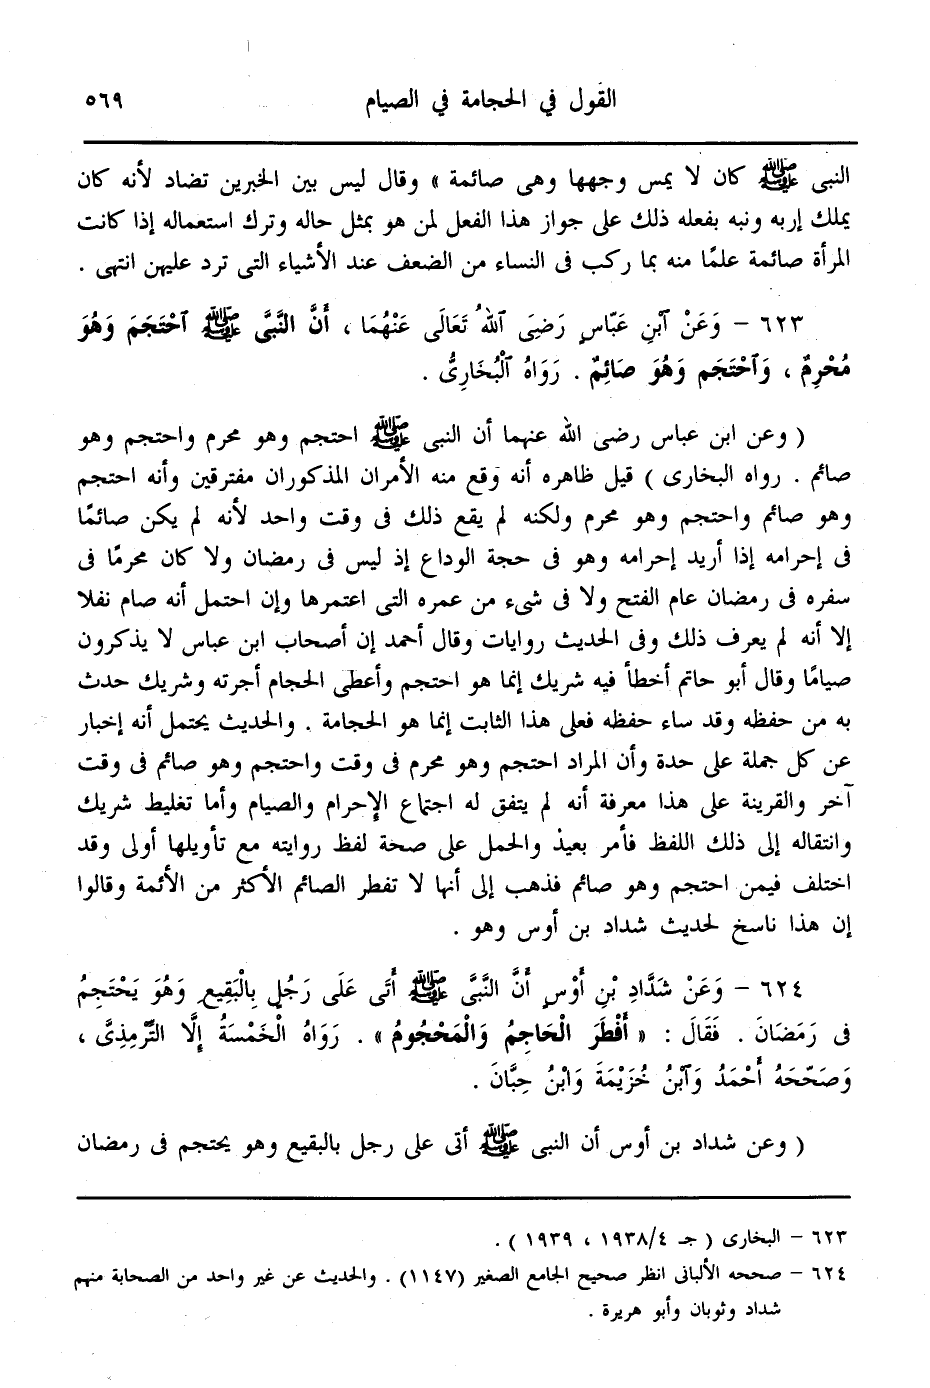 القول في الحجامة في الصيام ٥٦٩
النبى ﷺ كان لا يمس وجهها وهى صائمة » وقال ليس بين الخبرين تضاد لأنه كان
يملك إربه ونبه بفعله ذلك على جواز هذا الفعل لمن هو بمثل حاله وترك استعماله إذا كانت
المرأة صائمة علمًا منه بما ركب فى النساء من الضعف عند الأشياء التى ترد عليهن انتهى .
٦٢٣ – وَعَنْ ٱبْنِ عَبَّاسٍ رَضِىَ ٱللهُ تَعَالَى عَنْهُمَا ، أَنَّ النَّبىَّ ﷺ ٱحْتَجَمَ وَهُوَ
مُحْرِمٌ ، وَٱحْتَجَم وَهُوَ صَائِمٌ . رَوَاهُ ٱلْبُخَارِىُّ .
( وعن ابن عباس رضى الله عنهما أن النبى ﷺ احتجم وهو محرم واحتجم وهو
صائم . رواه البخارى ) قيل ظاهره أنه وقع منه الأمران المذكوران مفترقين وأنه احتجم
وهو صائم واحتجم وهو محرم ولكنه لم يقع ذلك فى وقت واحد لأنه لم يكن صائمًا
فى إحرامه إذا أريد إحرامه وهو فى حجة الوداع إذ ليس فى رمضان ولا كان محرمًا فى
سفره فى رمضان عام الفتح ولا فى شىء من عمره التى اعتمرها وإن احتمل أنه صام نفلا
إلا أنه لم يعرف ذلك وفى الحديث روايات وقال أحمد إن أصحاب ابن عباس لا يذكرون
صيامًا وقال أبو حاتم أخطأ فيه شريك إنما هو احتجم وأعطى الحجام أجرته وشريك حدث
به من حفظه وقد ساء حفظه فعلى هذا الثابت إنما هو الحجامة . والحديث يحتمل أنه إخبار
عن كل جملة على حدة وأن المراد احتجم وهو محرم فى وقت واحتجم وهو صائم فى وقت
آخر والقرينة على هذا معرفة أنه لم يتفق له اجتماع الإحرام والصيام وأما تغليط شريك
وانتقاله إلى ذلك اللفظ فأمر بعيد والحمل على صحة لفظ روايته مع تأويلها أولى وقد
اختلف فيمن احتجم وهو صائم فذهب إلى أنها لا تفطر الصائم الأكثر من الأئمة وقالوا
إن هذا ناسخ لحديث شداد بن أوس وهو .
٦٢٤ – وَعَنْ شَدَّادِ بْنِ أَوْسٍ أَنَّ النَّبىَّ ﷺ أَتَى عَلَى رَجُلٍ بِالْبَقِيعِ وَهُوَ يَحْتَجِمُ
فى رَمَضَانَ . فَقَالَ : « أَفْطَرَ الْحَاجِمُ وَالْمَحْجُومُ » . رَوَاهُ الْخَمْسَةُ إِلَّا التِّرْمِذِىَّ ،
وَصَحَّحَهُ أَحْمَدُ وَٱبْنُ خُزَيْمَةَ وَابْنُ حِبَّانَ .
( وعن شداد بن أوس أن النبى ﷺ أتى على رجل بالبقيع وهو يحتجم فى رمضان
٦٢٣ – البخارى ( جـ ١٩٣٨/٤ ، ١٩٣٩ ) .
٦٢٤ – صححه الألبانى انظر صحيح الجامع الصغير (١١٤٧) . والحديث عن غير واحد من الصحابة منهم
شداد وثوبان وأبو هريرة .